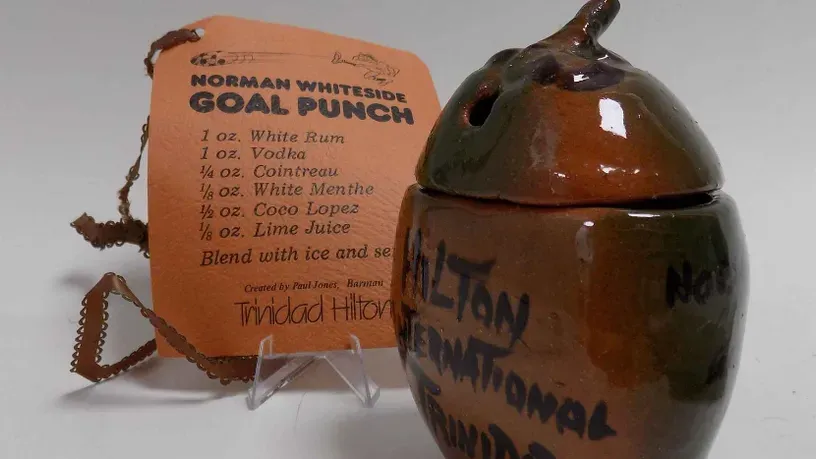 NORMAN WHITESIDE
GOAL PUNCH
1 oz. White Rum
1 oz. Vodka
¼ oz. Cointreau
⅛ oz. White Menthe
½ oz. Coco Lopez
⅛ oz. Lime Juice
Blend with ice and se
Created by Paul Jones, Barman
Trinidad Hilton
HILTON
TERNATIONAL
TRINIDA
NOR